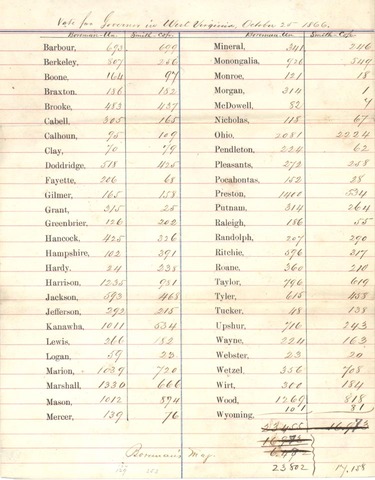 Vote for Governor in West Virginia, October 25 1866.
Boreman-Un. Smith-Cop. Boreman-Un. Smith-Cop.
Barbour, 693 699 Mineral, 341 246
Berkeley, 807 266 Monongalia, 926 549
Boone, 164 97 Monroe, 121 18
Braxton, 186 182 Morgan, 314 1
Brooke, 483 437 McDowell, 82 7
Cabell, 305 165 Nicholas, 118 67
Calhoun, 95 109 Ohio, 2081 2224
Clay, 70 79 Pendleton, 224 62
Doddridge, 518 425 Pleasants, 272 258
Fayette, 206 68 Pocahontas, 152 28
Gilmer, 165 158 Preston, 1400 534
Grant, 315 25 Putnam, 314 264
Greenbrier, 126 202 Raleigh, 186 55
Hancock, 425 226 Randolph, 207 290
Hampshire, 102 391 Ritchie, 596 317
Hardy, 24 238 Roane, 360 210
Harrison, 1235 951 Taylor, 796 619
Jackson, 593 468 Tyler, 615 458
Jefferson, 292 215 Tucker, 48 138
Kanawha, 1011 534 Upshur, 716 243
Lewis, 266 182 Wayne, 224 163
Logan, 59 23 Webster, 23 20
Marion, 1039 720 Wetzel, 356 708
Marshall, 1330 666 Wirt, 300 184
Mason, 1012 894 Wood, 1269 818
Mercer, 139 76 Wyoming, 101 81
23455 16,973
16,973
Boreman's Maj
23802 17,158